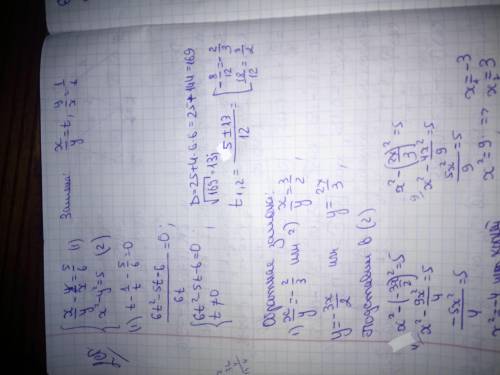 { x/y - y/x = 5/6 (1)
x² - y² = 5 (2)
Замена: x/y = t, y/x = 1/t
(1) t - 1/t - 5/6 = 0
(6t² - 5t - 6)/6t = 0;
{ 6t² - 5t - 6 = 0
t ≠ 0 ;
D = 25 + 4·6·6 = 25 + 144 = 169
√169 = 13;
t₁,₂ = (5 ± 13)/12 = [ -8/12 = -2/3
18/12 = 3/2
Обратная замена:
1) x/y = -2/3 или 2) x/y = 3/2;
y = -3x/2 или y = 2x/3;
Подставим в (2)
1) x² - (-3x/2)² = 5
x² - 9x²/4 = 5
-5x²/4 = 5
x² = -4
2) x² - (2x/3)² = 5
x² - 4x²/9 = 5
5x²/9 = 5
x² = 9 => x = -3
x = 3